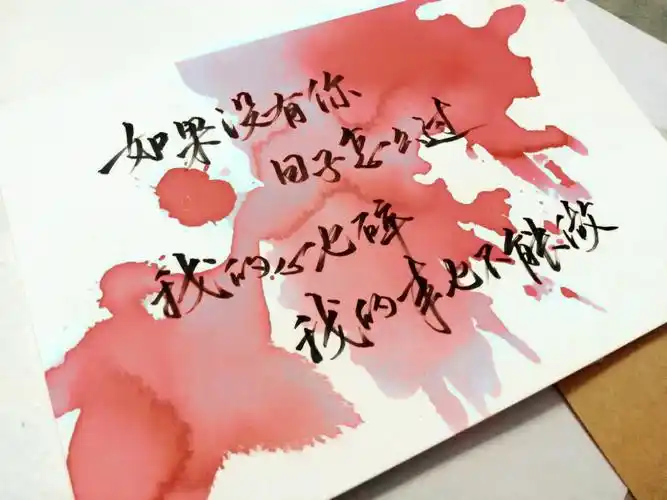 如果没有你
日子怎么过
我的心也碎
我的事也不能做